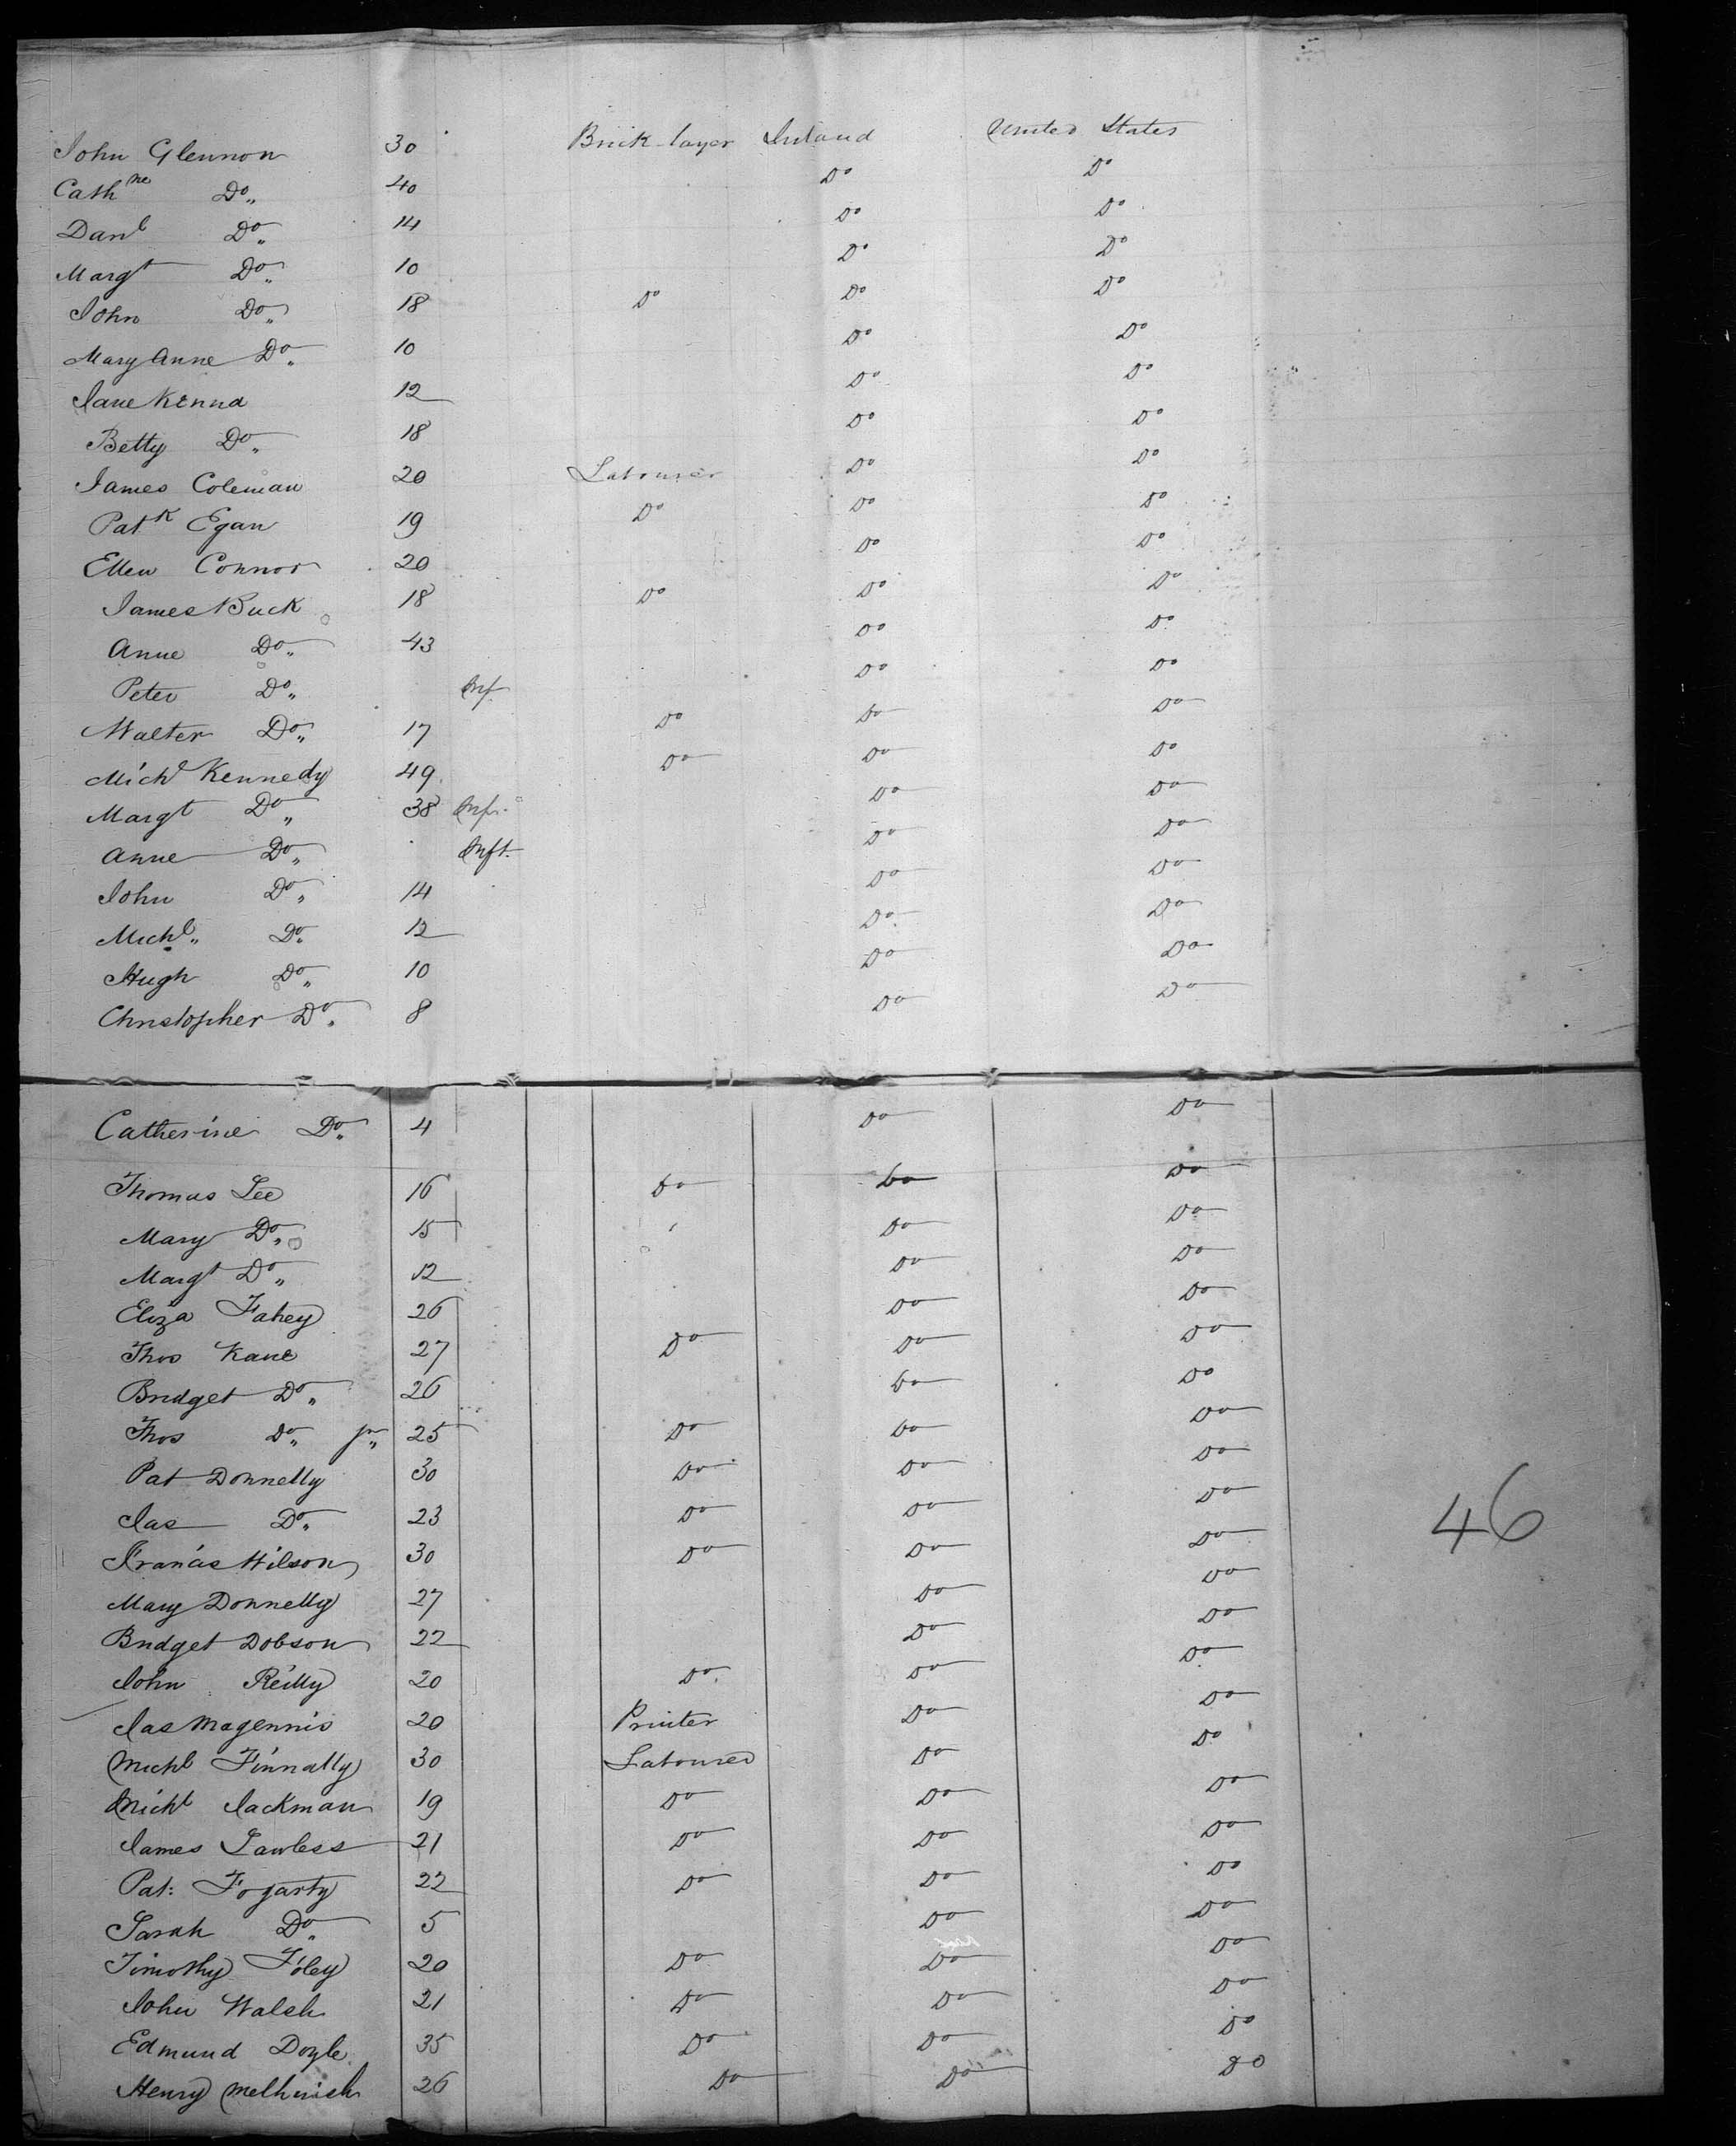 John Glennon 30 Brick layer Ireland United States
Cathne Do 40 Do Do
Danl Do 14 Do Do
Margt Do 10 Do Do
John Do 18 Do Do Do
Mary Anne Do 10 Do Do
Jane Kenna 12 Do Do
Betty Do 18 Do Do
James Coleman 20 Labourer Do Do
Patk Egan 19 Do Do Do
Ellen Connor 20 Do Do
James Buck 18 Do Do Do
Anne Do 43 Do Do
Peter Do Inf Do Do
Walter Do 17 Do Do Do
Michl Kennedy 49 Do Do Do
Margt Do 38 Inf. Do Do
Anne Do Inft. Do Do
John Do 14 Do Do
Michl Do 12 Do Do
Hugh Do 10 Do Do
Christopher Do 8 Do Do
Catherine Do 4 Do Do
Thomas Lee 16 Do Do Do
Mary Do 15 Do Do
Margt Do 12 Do Do
Eliza Fahey 26 Do Do
Thos Kane 27 Do Do Do
Bridget Do 26 Do Do
Thos Do Jr 25 Do Do Do
Pat Donnelly 30 Do Do Do
Jas Do 23 Do Do Do
Francis Wilson 30 Do Do Do
Mary Donnelly 27 Do Do
Bridget Dobson 22 Do Do
John Reilly 20 Do Do Do
Jas Magennis 20 Printer Do Do
Michl Finnally 30 Labourer Do Do
Michl Jackman 19 Do Do Do
James Lawless 21 Do Do Do
Pat: Fogarty 22 Do Do Do
Sarah Do 5 Do Do
Timothy Foley 20 Do Do Do
John Walsh 21 Do Do Do
Edmund Doyle 35 Do Do Do
Henry Melhuish 26 Do Do Do
46